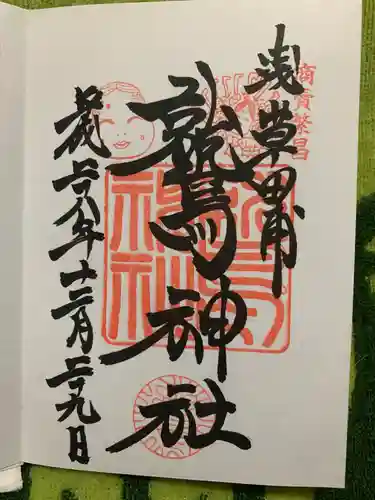 商賣繁昌
浅草田甫
鷲神社
平成二十八年十二月二十九日